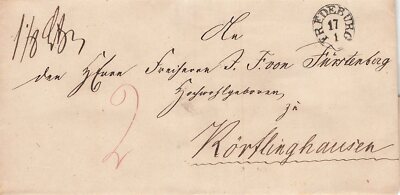 FREDEBURG
17
1
An
den Herrn Freiherrn J. F. von Fürstenberg
Hochwohlgeboren
zu
2
Körtlinghausen